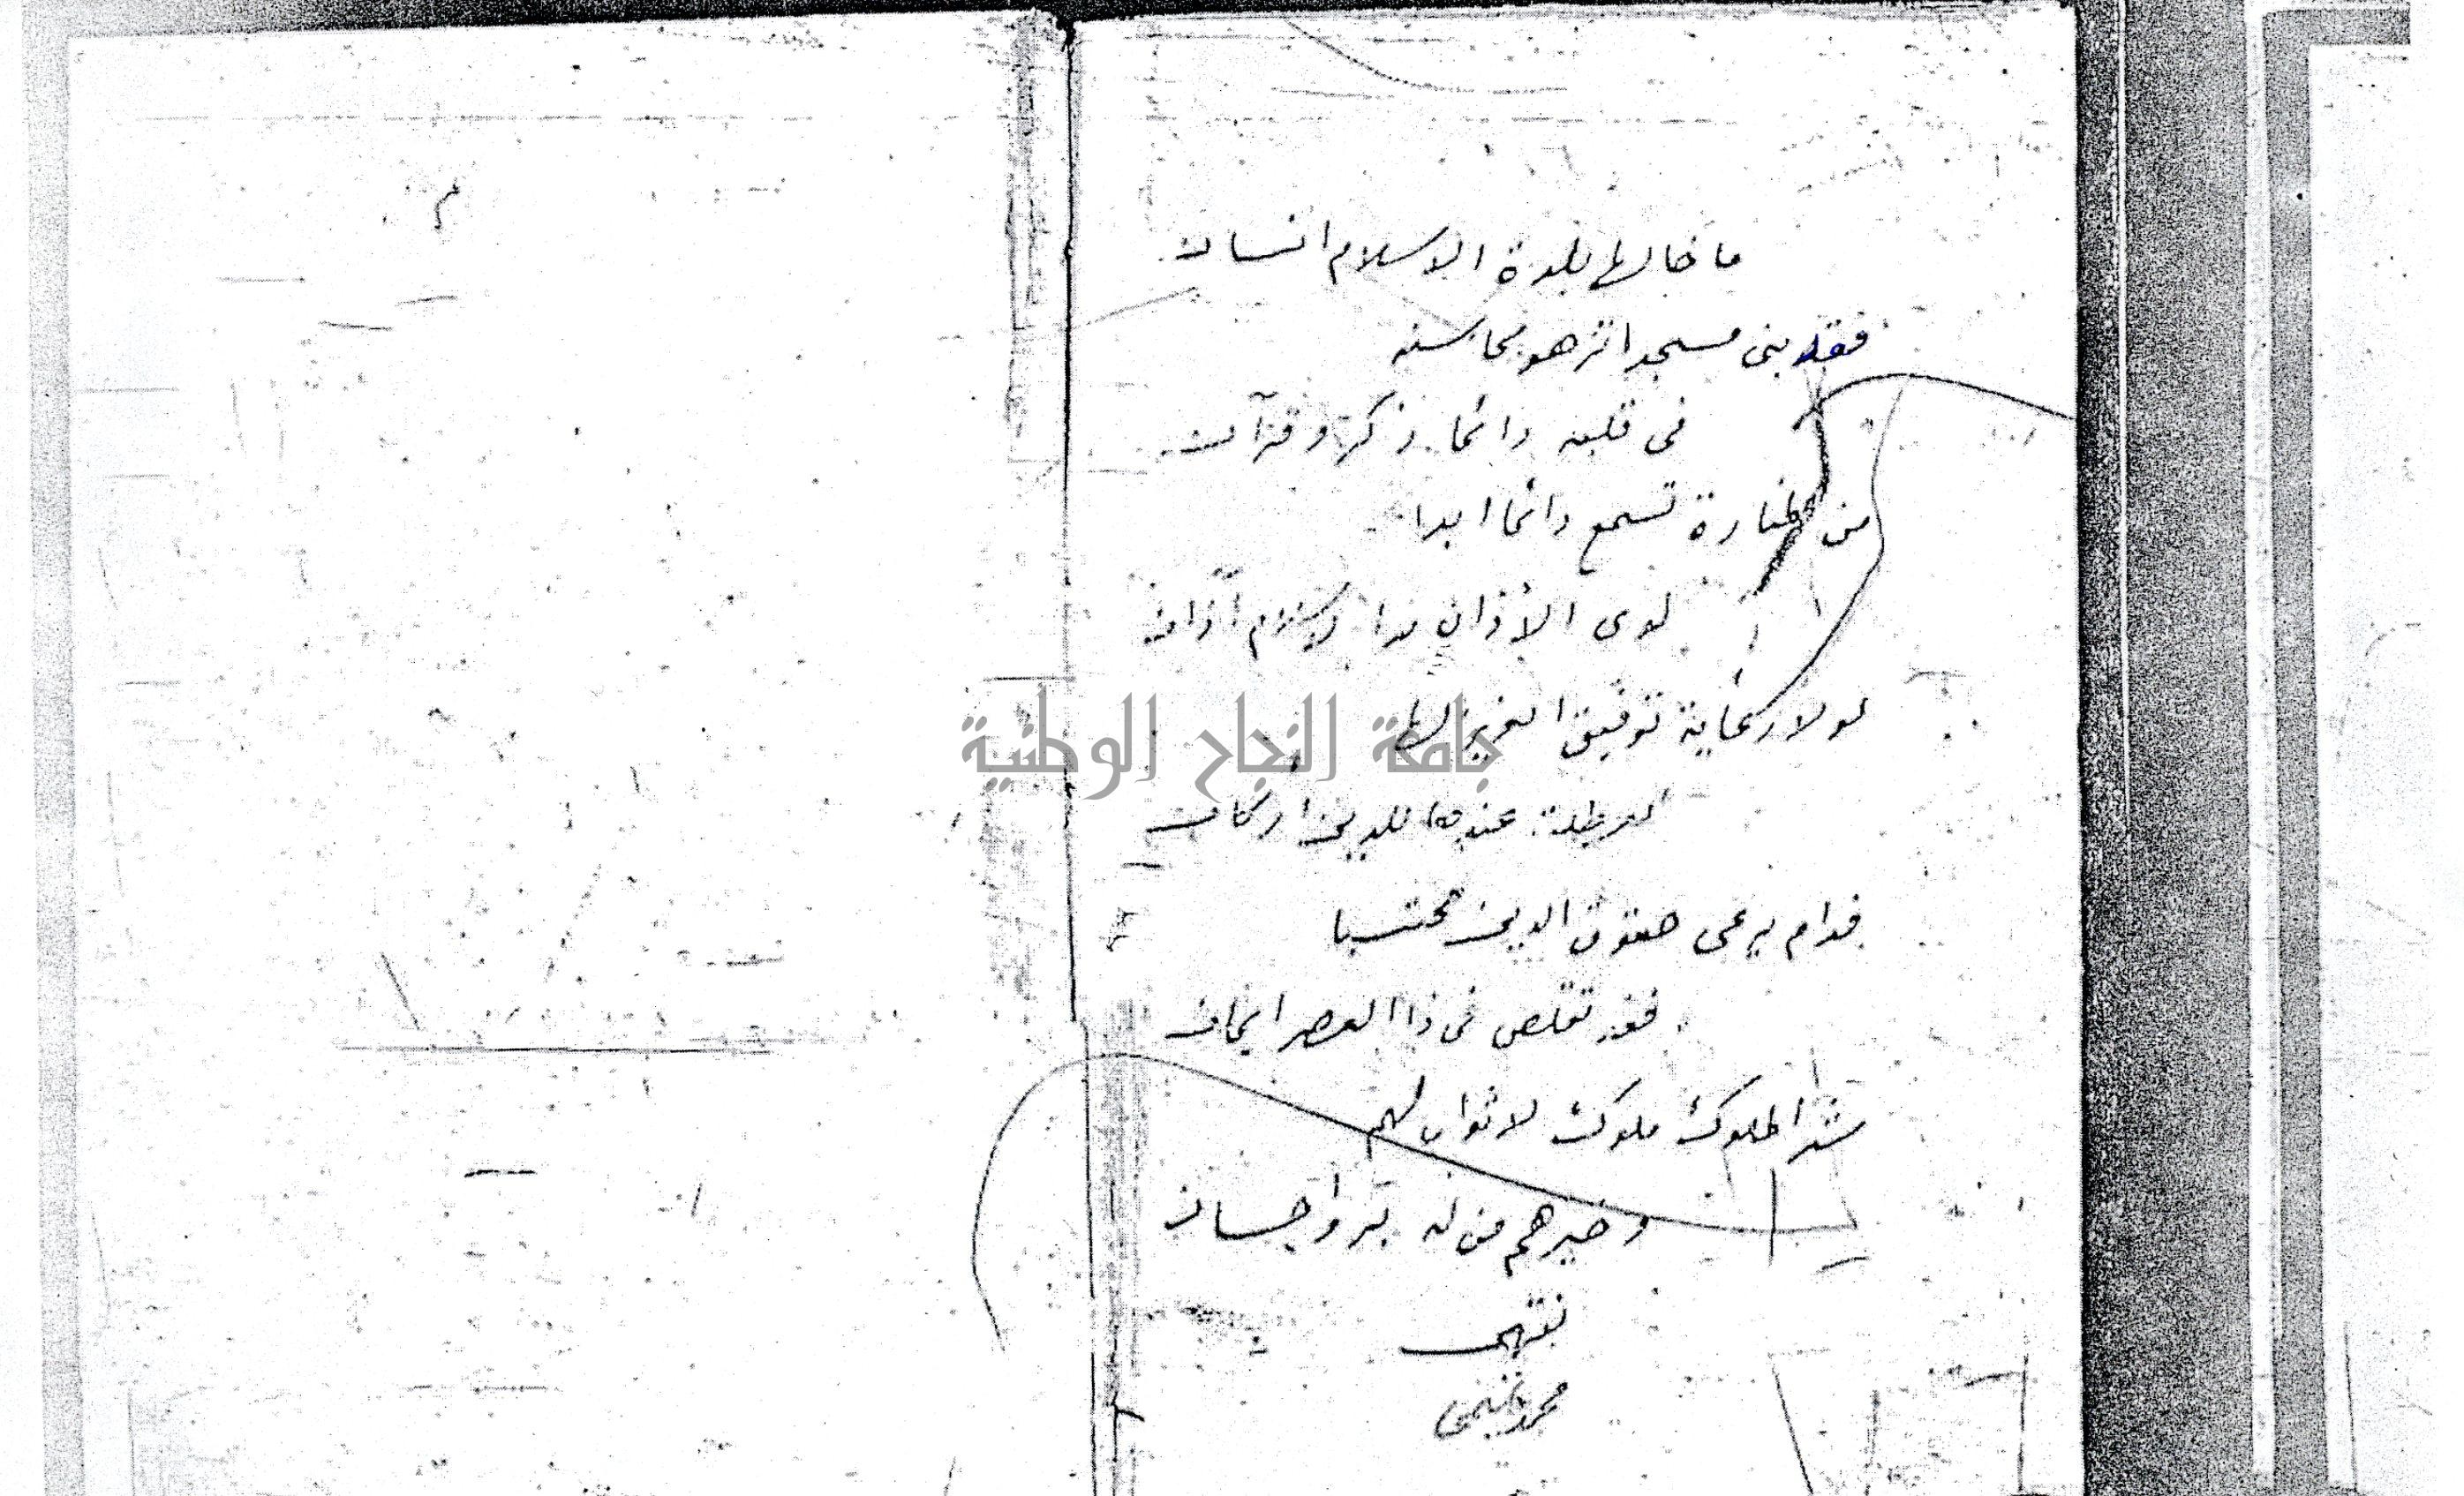 ما خالها بلدة الاسلام انسان
فقد بنى مسجدا تزهو محاسنه
فى قلبه دائما ذكر و قرآن
من المنارة تسمع دائما ابدا
لدى الأذان آذان
لولا رعاية توفيق العزيز لها
عندها للدين اركان
فدام يرعى حقوق الدين محتسبا
فقد تقلص فى ذا العصر ايمان
شر الملوك ملوك لا ثواب لهم
و خيرهم من له بر و احسان
محمد
جامعة النجاح الوطنية